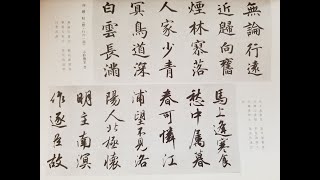 無論行遠
近歸向舊
煙林寥落
人家少青
冥鳥道深
白雲長滿
馬上逢寒食
愁中屬暮
春可憐江
浦望不見洛
陽人北極懷
明主南溟
作逐臣故